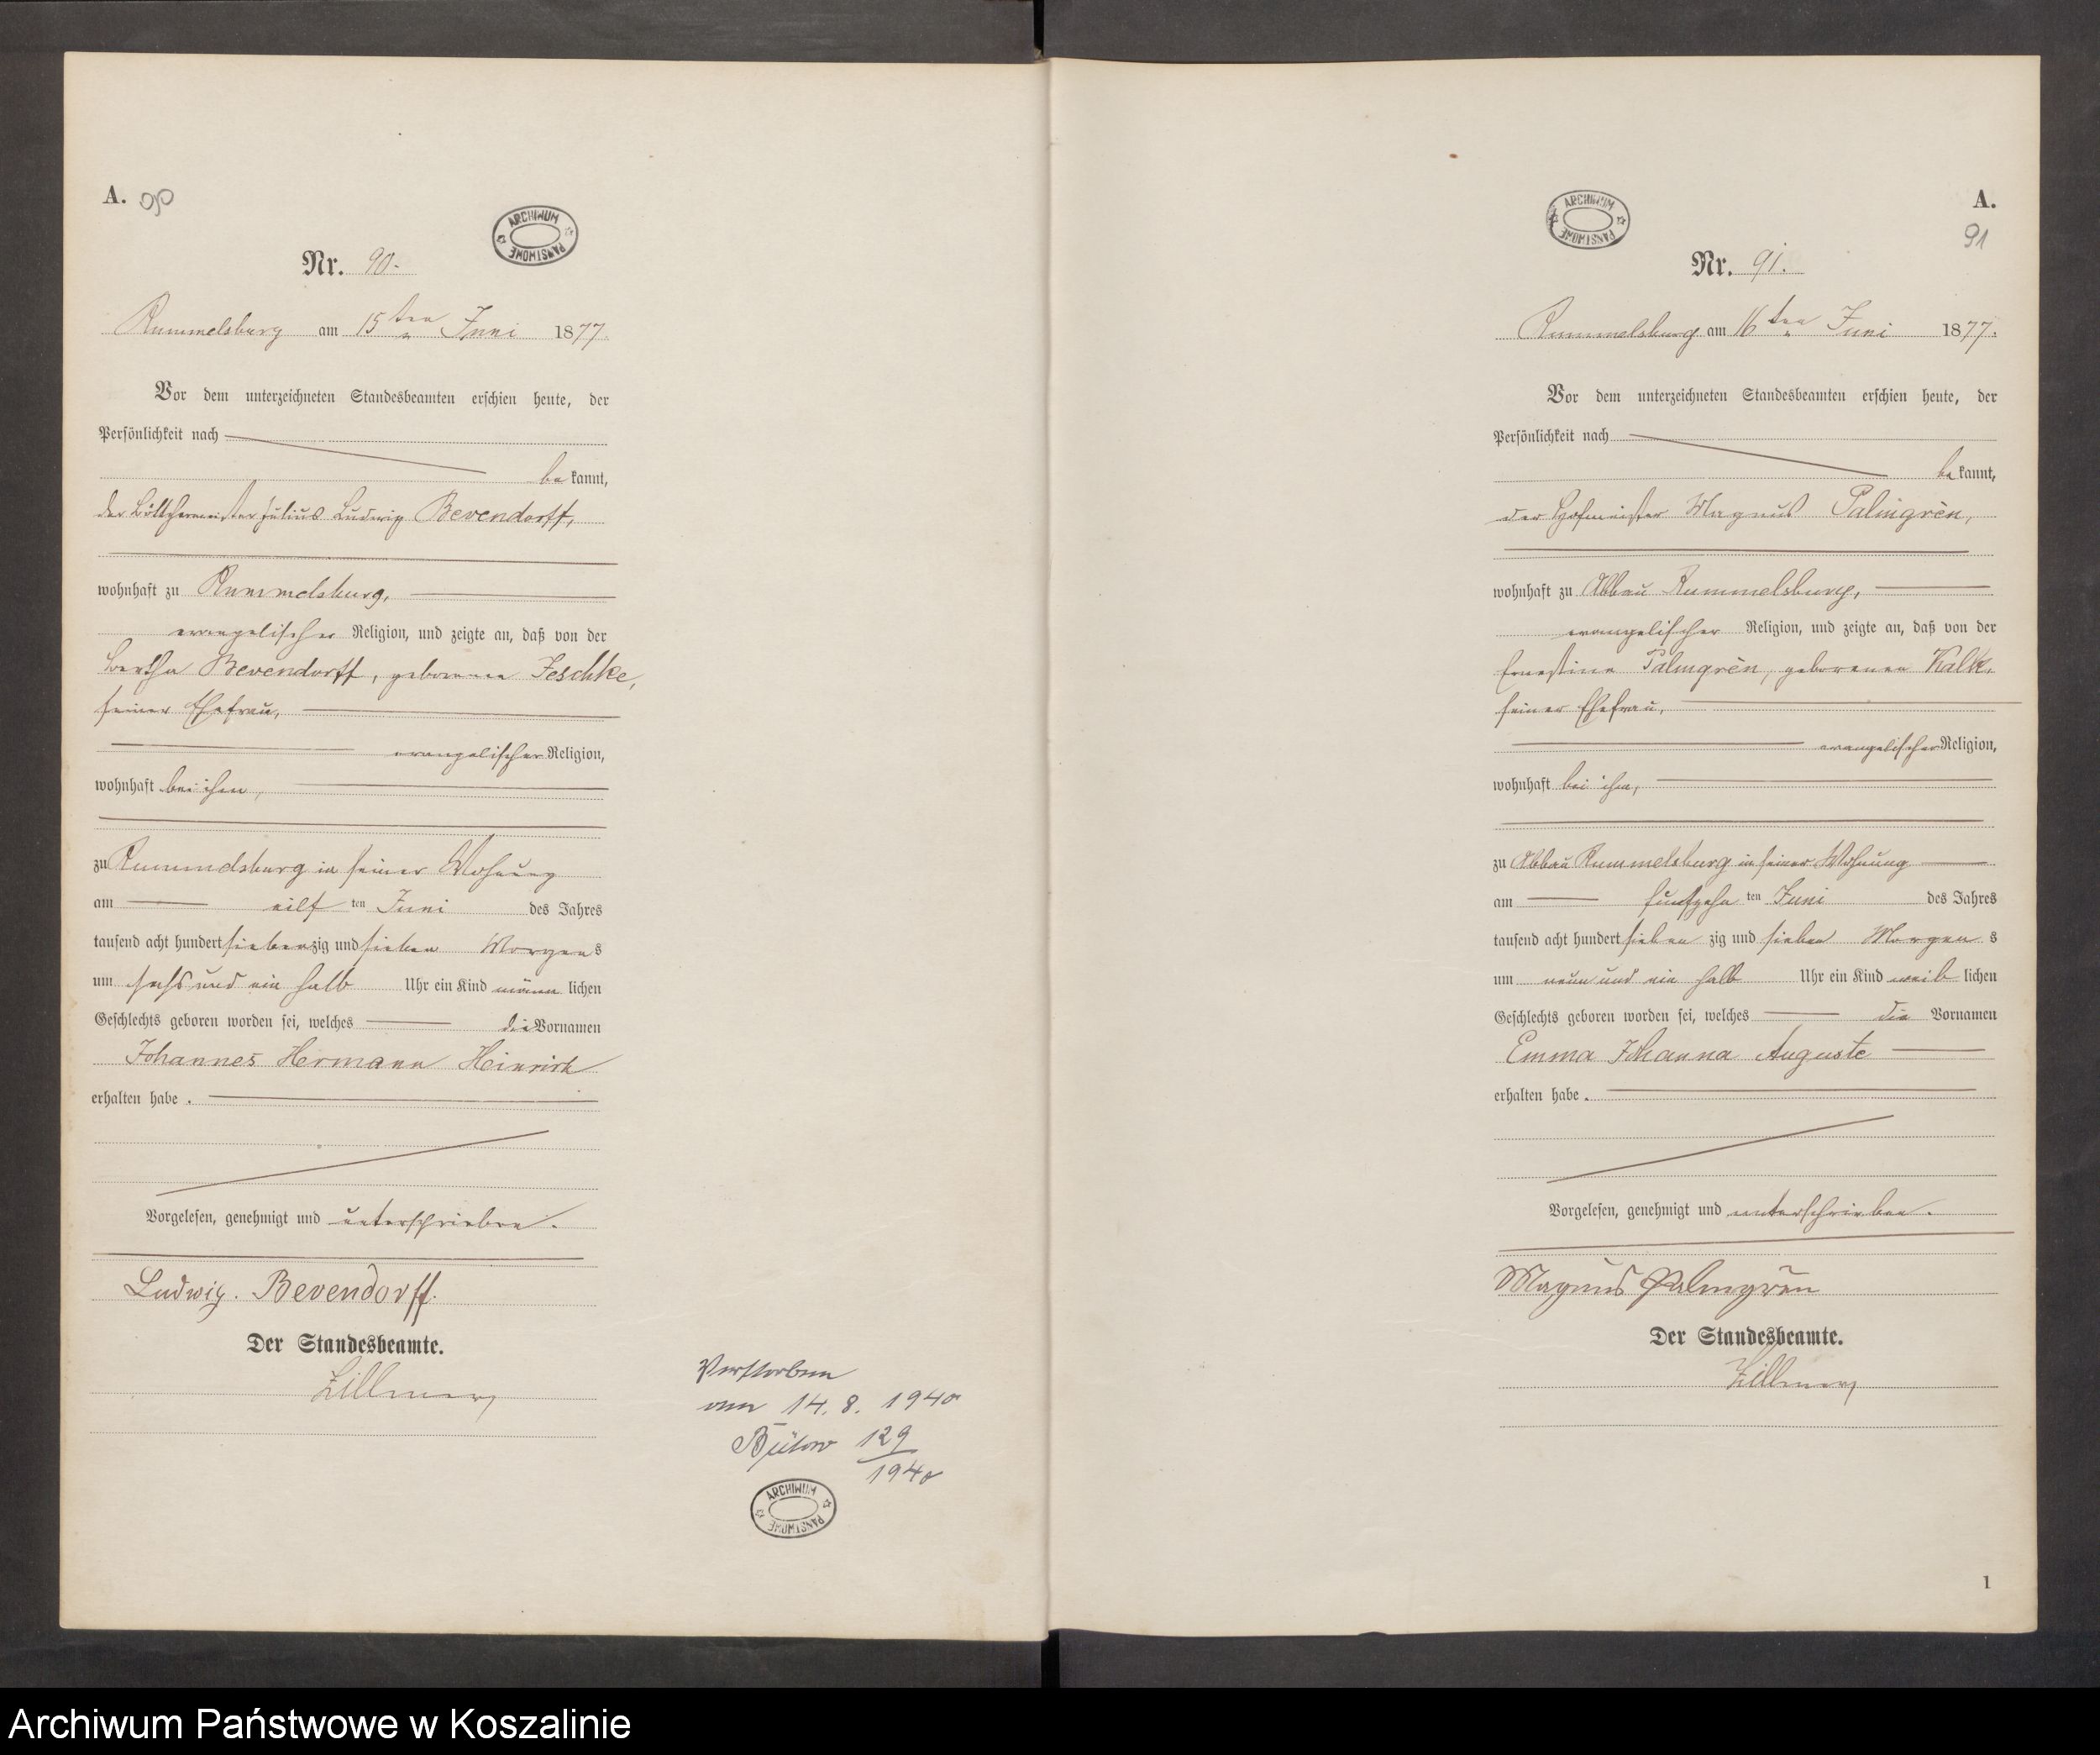 A. 90
ARCHIWUM PAŃSTWOWE
Nr. 90.
Rummelsburg am 15ten Juni 1877.
Vor dem unterzeichneten Standesbeamten erschien heute, der
Persönlichkeit nach
bekannt,
der Böttchermeister Julius Ludwig Bevendorff,
wohnhaft zu Rummelsburg,
evangelischer Religion, und zeigte an, daß von der
Bertha Bevendorff, geborenen Jeschke,
seiner Ehefrau,
evangelischer Religion,
wohnhaft bei ihm,
zu Rummelsburg in seiner Wohnung
am eilf ten Juni des Jahres
tausend acht hundert siebenzig und sieben Morgens
um sechs und ein halb Uhr ein Kind männlichen
Geschlechts geboren worden sei, welches die Vornamen
Johannes Hermann Heinrich
erhalten habe.
Vorgelesen, genehmigt und unterschrieben.
Ludwig. Bevendorff.
Der Standesbeamte.
Zillmer
Verstorben
am 14. 8. 1940
Bütow 129
1940
ARCHIWUM PAŃSTWOWE
A.
91
ARCHIWUM PAŃSTWOWE
Nr. 91.
Rummelsburg am 16ten Juni 1877.
Vor dem unterzeichneten Standesbeamten erschien heute, der
Persönlichkeit nach
bekannt,
der Hofmeister Magnus Palmgrèn,
wohnhaft zu Abbau Rummelsburg,
evangelischer Religion, und zeigte an, daß von der
Ernestine Palmgrèn, geborenen Kalk,
seiner Ehefrau,
evangelischer Religion,
wohnhaft bei ihm,
zu Abbau Rummelsburg in seiner Wohnung
am funfzehn ten Juni des Jahres
tausend acht hundert sieben zig und sieben Morgen s
um neun und ein halb Uhr ein Kind weib lichen
Geschlechts geboren worden sei, welches die Vornamen
Emma Johanna Auguste
erhalten habe.
Vorgelesen, genehmigt und unterschrieben.
Magnus Palmgrèn
Der Standesbeamte.
Zillmer
1
Archiwum Państwowe w Koszalinie